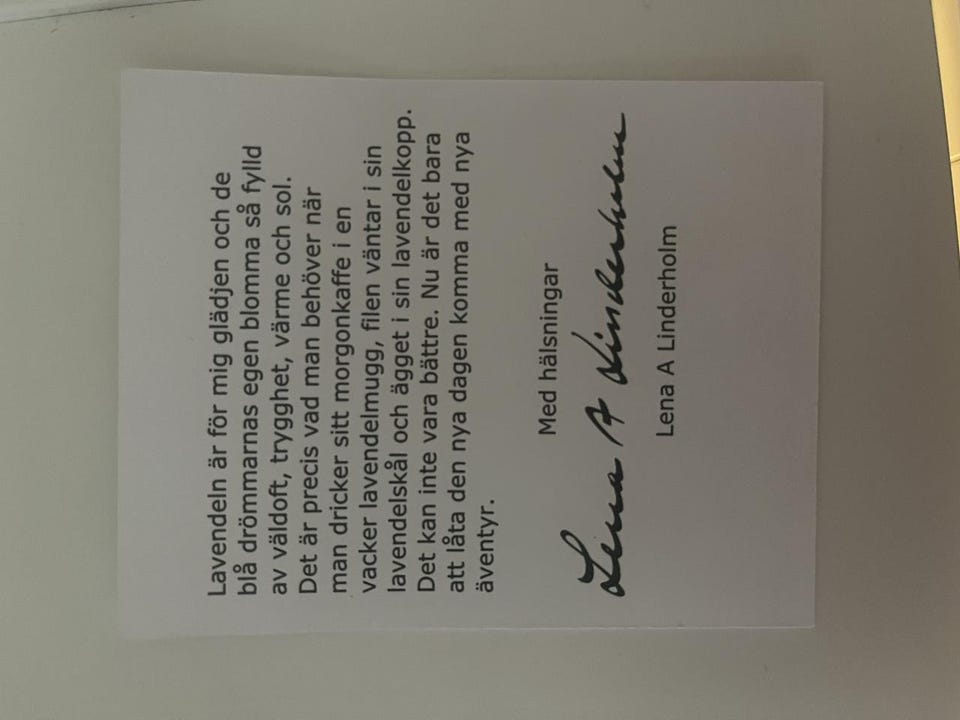 Lavendeln är för mig glädjen och de
blå drömmarnas egen blomma så fylld
av väldoft, trygghet, värme och sol.
Det är precis vad man behöver när
man dricker sitt morgonkaffe i en
vacker lavendelmugg, filen väntar i sin
lavendelskål och ägget i sin lavendelkopp.
Det kan inte vara bättre. Nu är det bara
att låta den nya dagen komma med nya
äventyr.
Med hälsningar
Lena A Linderholm
Lena A Linderholm